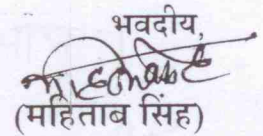 भवदीय,
(महिताब सिंह)